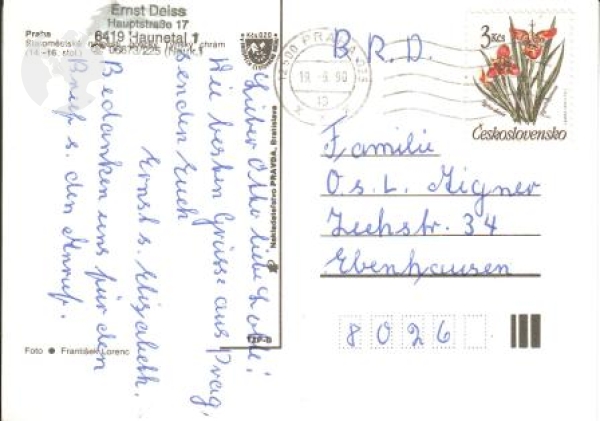 Ernst Deiss
Hauptstraße 17
6419 Haunetal 1
06673/225 (Neuk.)
Praha
Staroměstské
Týnský chrám
(14.–16. stol.)
Kčs 0,20
Lieber Otto liebe Lotte!
Die besten Grüsse aus Prag,
senden Euch
Ernst u. Elisabeth.
Bedanken uns für den
Brief u. den Anruf.
Foto ● František Lorenc
Nakladateľstvo PRAVDA, Bratislava
PRAHA
19.-9.90
B.R.D.
3 Kčs
Československo
Familie
O.s.L. Aigner
Zechstr. 34
Ebenhausen
8026